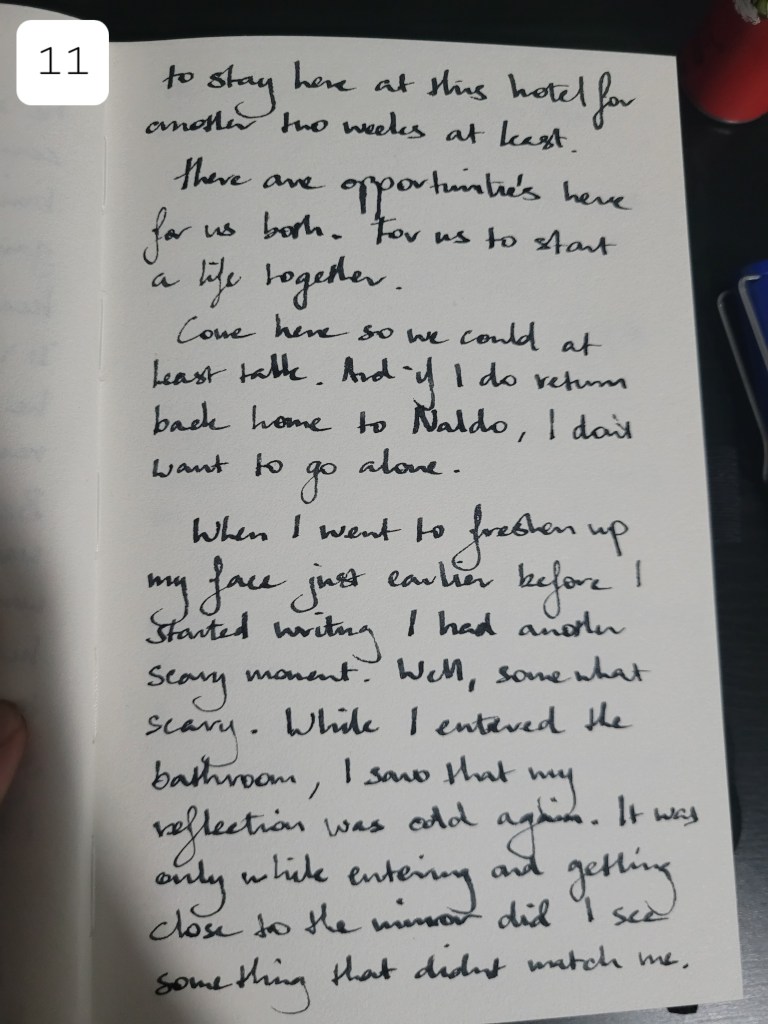 11
to stay here at this hotel for
another two weeks at least.
There are opportunities here
for us both. For us to start
a life together.
Come here so we could at
least talk. And if I do return
back home to Naldo, I don't
want to go alone.
When I went to freshen up
my face just earlier before I
started writing I had another
scary moment. Well, somewhat
scary. While I entered the
bathroom, I saw that my
reflection was odd again. It was
only while entering and getting
close to the mirror did I see
something that didnt match me.